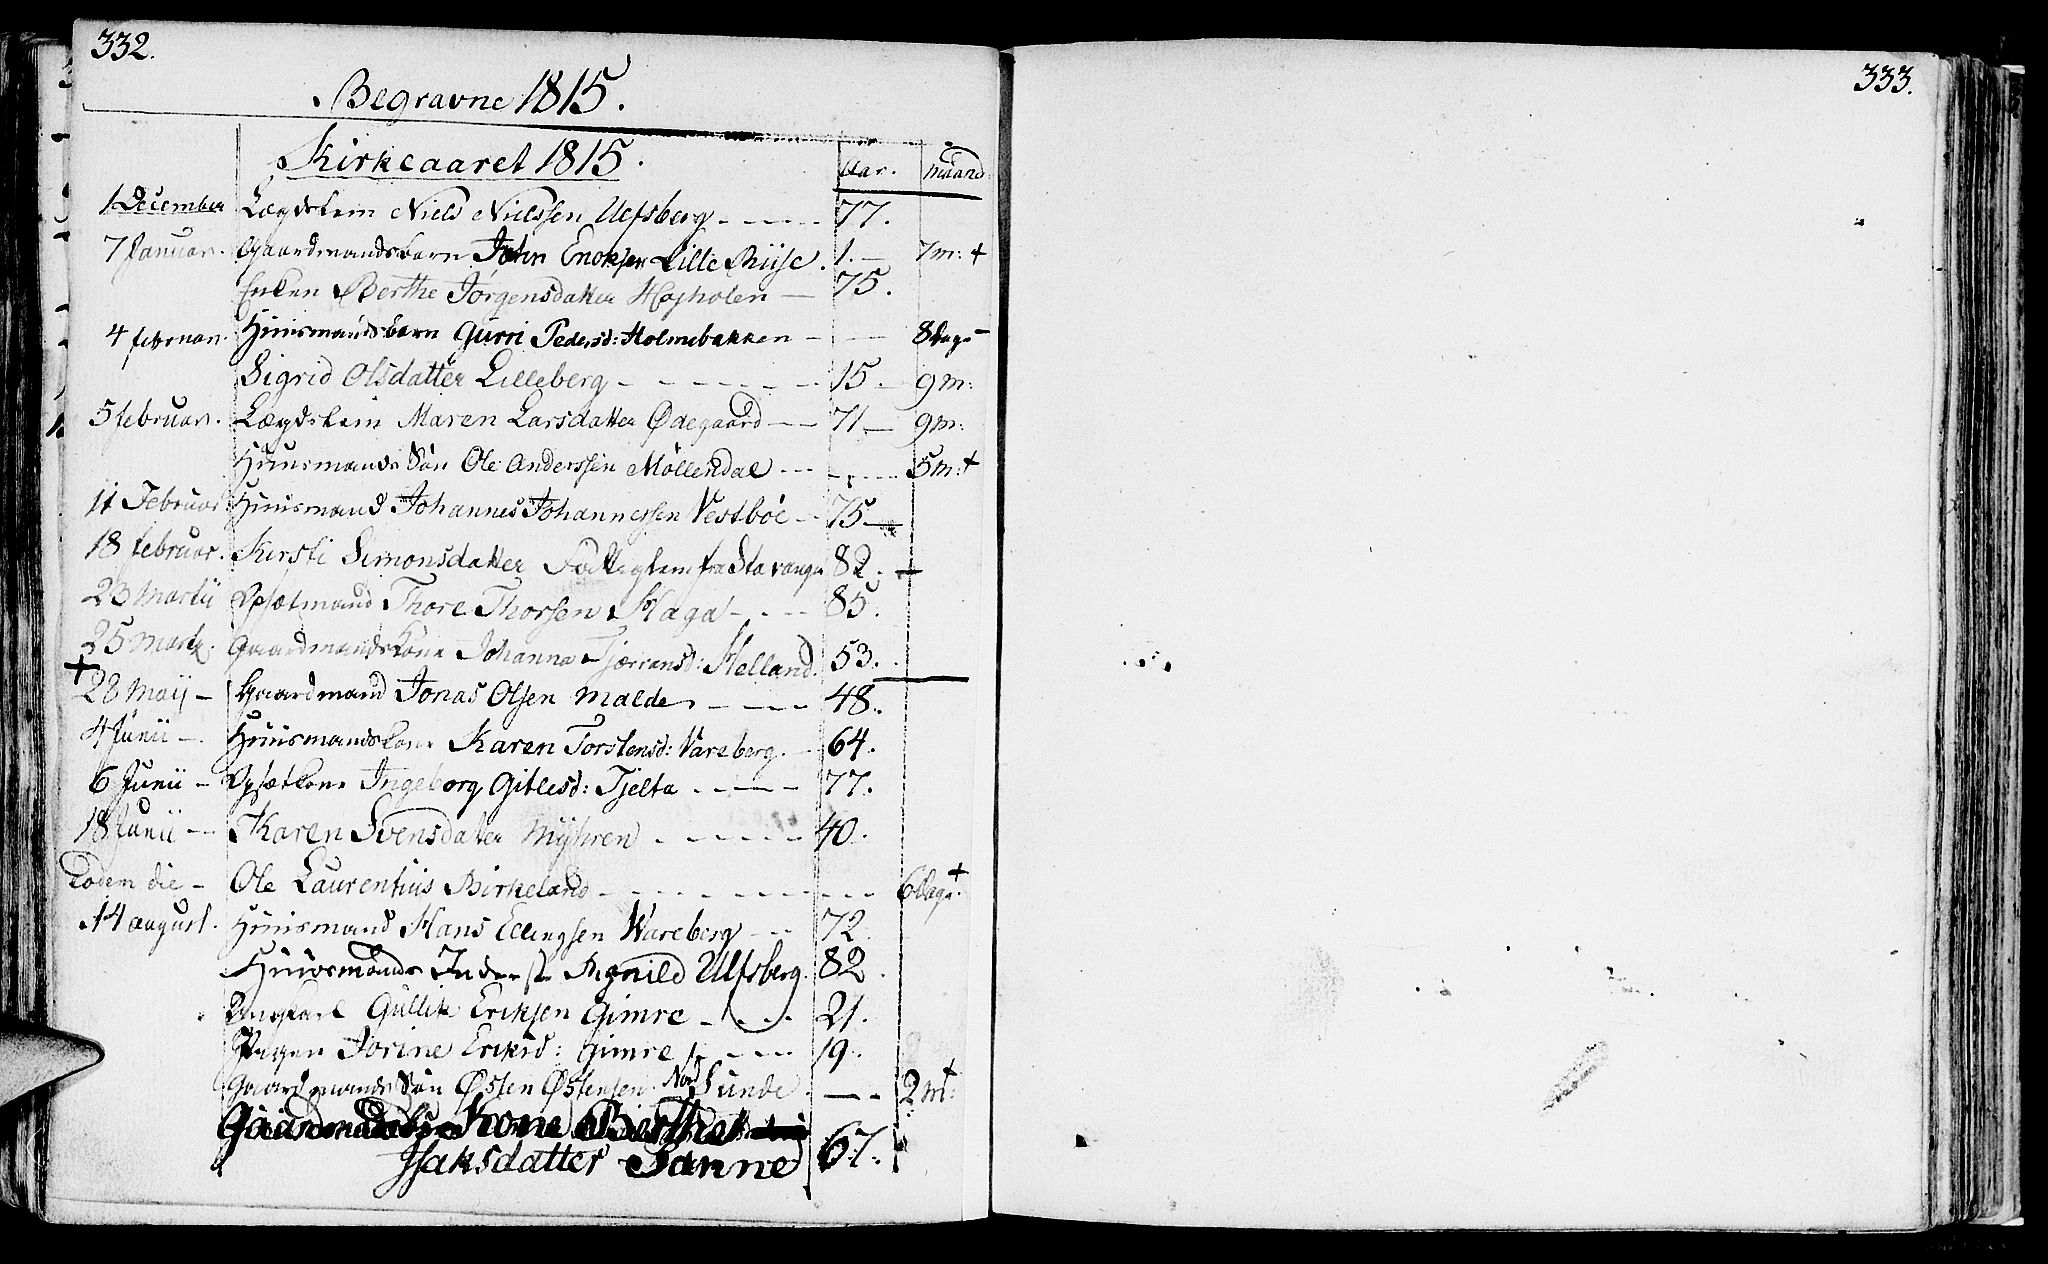 332.
Begravne 1815.
Kirkeaaret 1815. Aar. Maand:
1 December Lægdslem Niels Nielssen Ulfsberg 77.
7 Januar. Gaardmandsbarn John Enoksen Lille Riise. 1. 7 m: +
Enken Berthe Jörgensdatter Højholen 75.
4 februar. Huusmandsbarn Gurri Pedersd: Holmebakken 8 dage
Sigrid Olsdatter Lilleberg 15 9 m:
5 februar. Lægdslem Maren Larsdatter Ødegaard 71 9 m:
Huusmands Sön Ole Anderssen Möllendal 5 m: +
11 Februar Huusmand Johannes Johannessen Vestböe 75
18 februar. Kirsti Simonsdatter Fattiglem fra Stavanger 82.
23 Martii Opsætmand Thore Thorsen Haga 85.
25 Martii. Gaardmandskone Johanna Tjerransd: Helland. 53.
+
28 Maij Gaardmand Jonas Olsen Malde 48.
4 Junii Huusmandskone Karen Torstensd: Vareberg. 64.
6 Junii Opsætkone Ingeborg Gitlesd: Tjelta 77.
18 Junii Karen Svensdatter Myhren 40.
Eodem die Ole Laurentius Birkeland 6 dage. +
14 august. Huusmand Hans Ellingsen Wareberg 72
Huusmands Inderste Ragnild Ulfsberg. 82.
Ungkarl Gullik Eriksen Gimre 21.
Pigen Jorine Eriksd: Gimre 19.
Gaardmands Sön Østen Østensen Nord Sunde 2 m: +
Kone Berthe
Isaksdatter Tanne 67.
333.